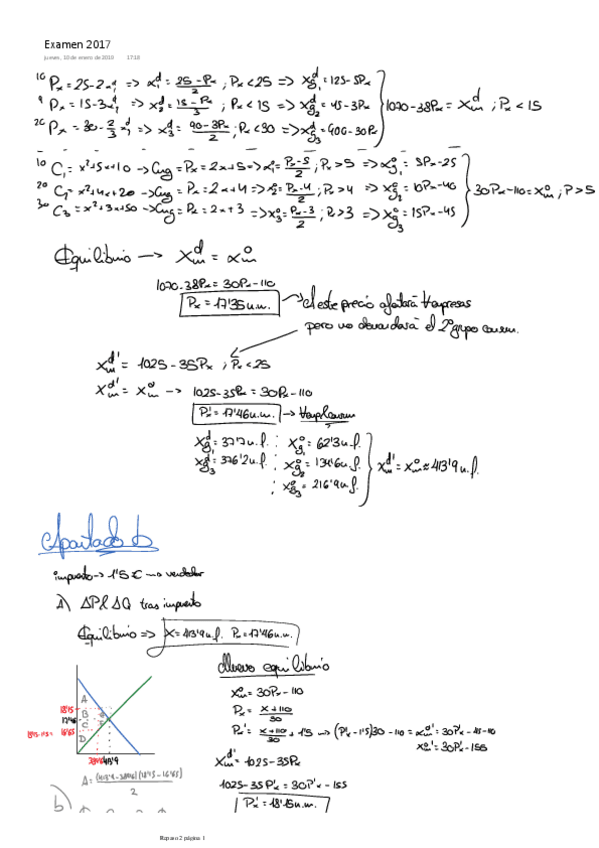 Examen 2017
jueves, 10 de enero de 2019 17:18
10 Px = 25-2x₁ => x₁ᵈ = (25-Px)/2 ; Px<25 => Xᵈg₁ = 125-5Px
Px = 15-3x₁ => x₂ᵈ = (15-Px)/3 ; Px<15 => Xᵈg₂ = 45-3Px
Px = 30-2/3 x₁ => x₃ᵈ = (90-3Px)/2 ; Px<90 => Xᵈg₃ = 900-30Px
1070-38Px = Xᵈm ; Px<15
10 C₁ = x²+5x+10 -> Cmg = Px = 2x+5 => x₁ᵒ = (Px-5)/2 ; Px>5 => Xᵒg₁ = 5Px-25
20 C₂ = x²+4x+20 -> Cmg = Px = 2x+4 => x₂ᵒ = (Px-4)/2 ; Px>4 => Xᵒg₂ = 10Px-40
30 C₃ = x²+3x+50 -> Cmg = Px = 2x+3 => x₃ᵒ = (Px-3)/2 ; Px>3 => Xᵒg₃ = 15Px-45
30Px-110 = Xᵒm ; P>5
Equilibrio -> Xᵈm = Xᵒm
1070-38Px = 30Px-110
Px = 17'35u.m. -> A este precio ofertará empresas
pero no demandará el 2º grupo consm.
Xᵈ'm = 1025-35Px ; Px<25
Xᵈ'm = Xᵒm -> 1025-35Px = 30Px-110
P'x = 17'46u.m. ->
Xᵈg₁ = 37'7u.f. ; Xᵒg₁ = 62'3u.f.
Xᵈg₃ = 376'2u.f. ; Xᵒg₂ = 134'6u.f.
; Xᵒg₃ = 216'9u.f.
Xᵈ'm = Xᵒm ≈ 413'9u.f.
Apartado b
impuesto -> 1'5€ -> vendedor
A) ΔP & ΔQ tras impuesto
Equilibrio => X = 413'9u.f. Px = 17'46u.m.
Nuevo equilibrio
Xᵒm = 30Px-110
Px = (X+110)/30
Px' = (X+110)/30 + 1'5 -> (P'x-1'5)30-110 = Xᵒ'm = 30P'x-45-110
Xᵒ'm = 30P'x-155
Xᵈ'm = 1025-35Px
1025-35P'x = 30P'x-155
P'x = 18'15u.m.
A
B
C
D
18'15
17'46
16'65
413'9
b)
Repaso 2 página 1